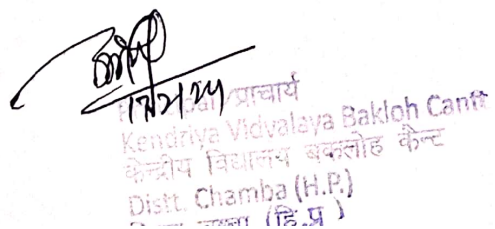 /प्राचार्य
Kendriya Vidyalaya Bakloh Cantt
केन्द्रीय विद्यालय बकलोह कैन्ट
Distt. Chamba (H.P.)
चम्बा (हि.प्र)